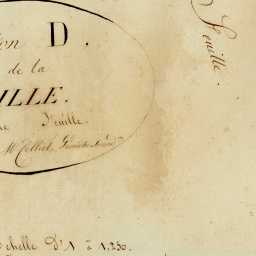 on D.
de la
ILLE.
e Feuille.
Mr
Feuille.
chelle D'1 à 1,250.